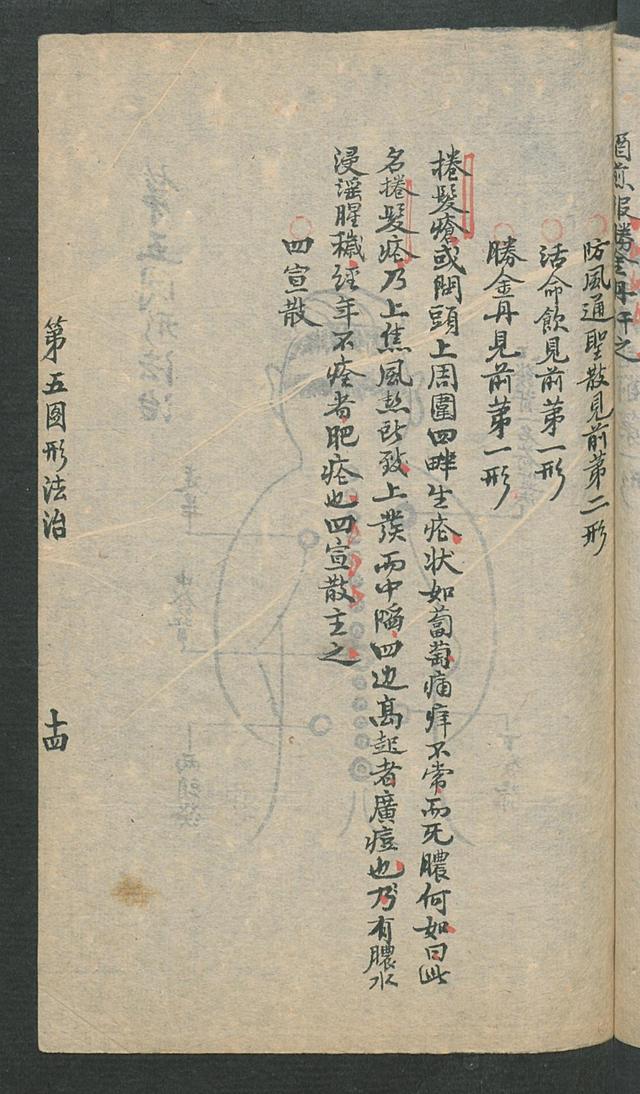 防風通聖散見前第二形
活命飲見前第一形
勝金丹見前第一形
捲髮瘡或問頭上周圍四畔生瘡状如葡萄痛痒不常而死膿何如曰此
名捲髮瘡乃上焦風熱所致上發而中陷四边高起者廣痘也乃有膿水
浸淫腥穢經年不痊者肥瘡也四宣散主之
四宣散
第五圖形法治
十四